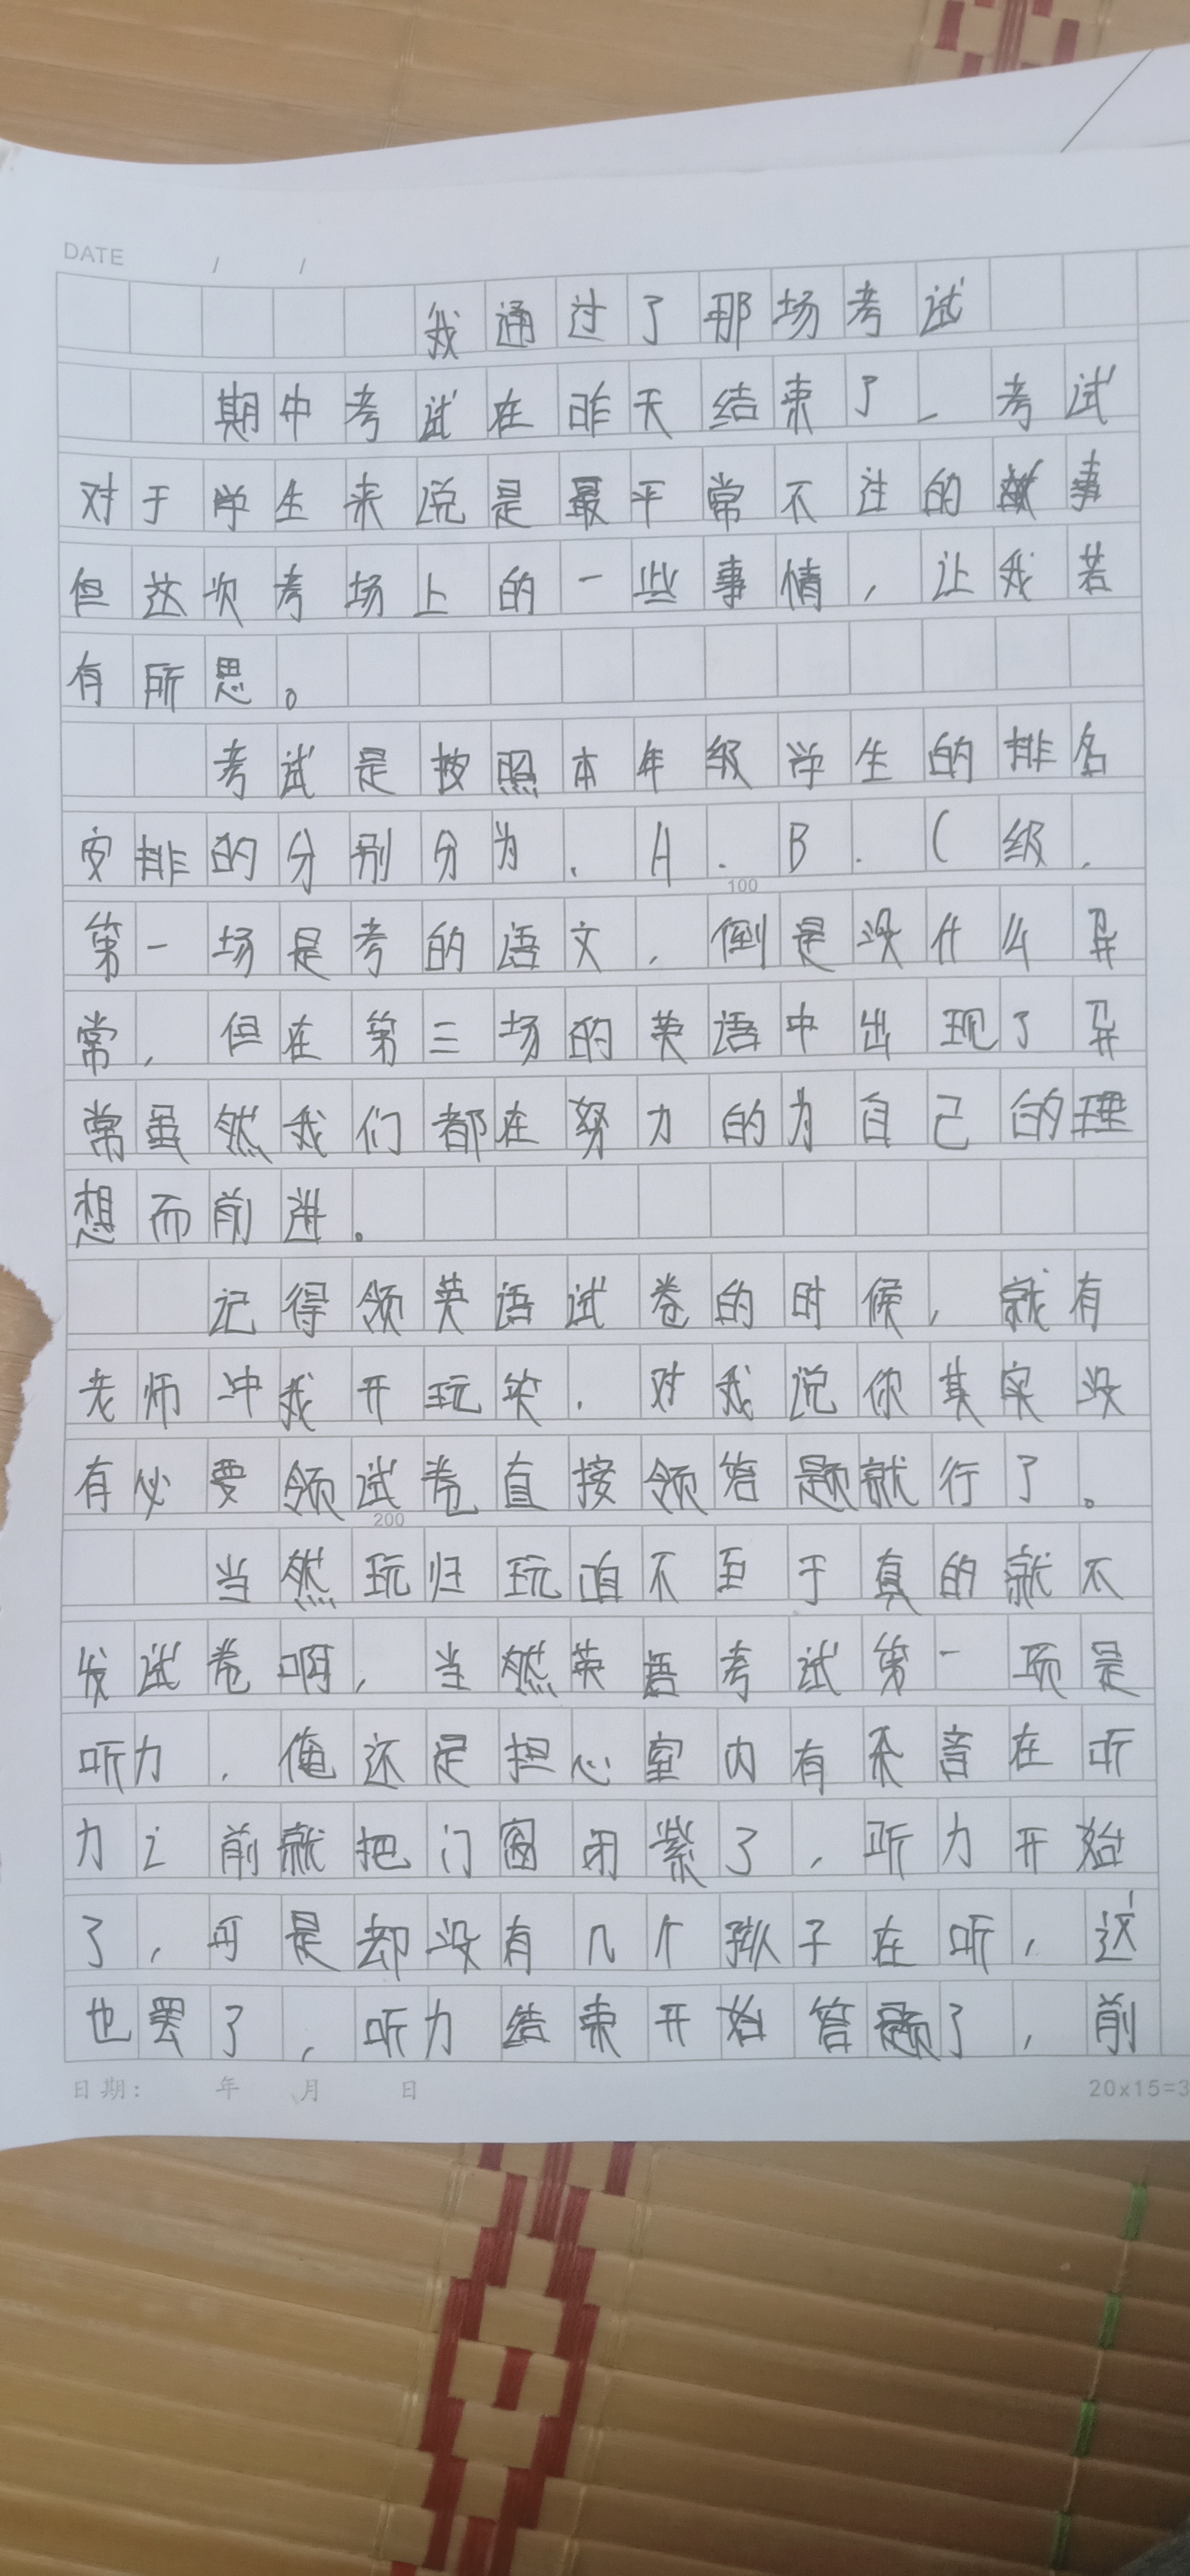 DATE / /
我通过了那场考试
期中考试在昨天结束了、考试
对于学生来说是最平常不过的事
但这次考场上的一些事情，让我若
有所思。
考试是按照本年级学生的排名
安排的分别分为、A.B.C级、
100
第一场是考的语文，倒是没什么异
常，但在第三场的英语中出现了异
常虽然我们都在努力的为自己的理
想而前进。
记得领英语试卷的时候，就有
老师冲我开玩笑，对我说你其实没
有必要领试卷直接领答题就行了。
200
当然玩归玩咱不至于真的就不
发试卷啊，当然英语考试第一项是
听力，俺还是担心室内有杂音在听
力之前就把门窗闭紧了，听力开始
了，可是却没有几个孩子在听，这
也罢了，听力结束开始答题了，前
日期： 年 月 日
20x15=3